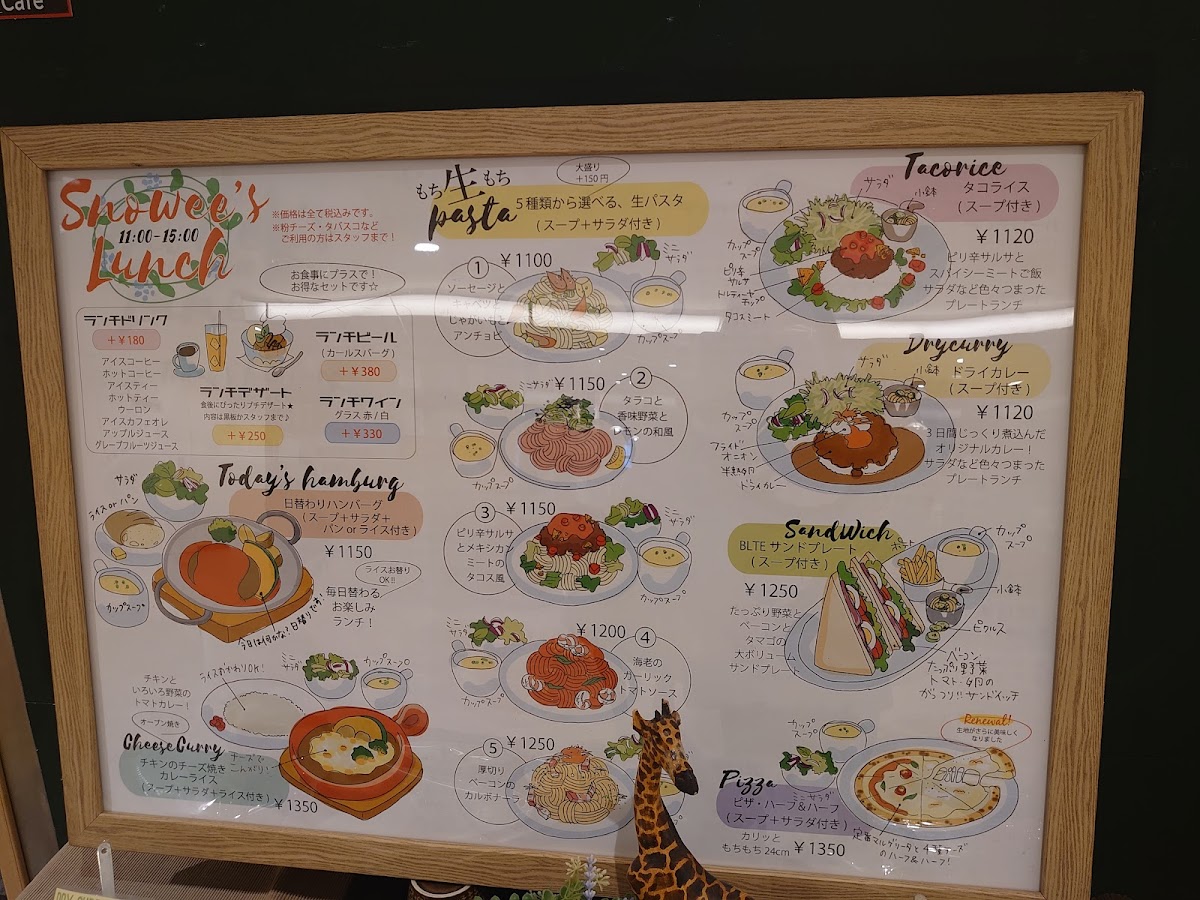 Cafe
Snowee's
11:00-15:00
Lunch
※価格は全て税込みです。
※粉チーズ・タバスコなど
ご利用の方はスタッフまで！
お食事にプラスで！
お得なセットです☆
ランチドリンク
＋￥180
アイスコーヒー
ホットコーヒー
アイスティー
ホットティー
ウーロン
アイスカフェオレ
アップルジュース
グレープフルーツジュース
ランチビール
(カールスバーグ)
＋￥380
ランチデザート
食後にぴったりプチデザート★
内容は黒板かスタッフまで♪
＋￥250
ランチワイン
グラス 赤 / 白
＋￥330
Today's hamburg
日替わりハンバーグ
(スープ＋サラダ＋
パン or ライス付き)
￥1150
ライスお替り
OK!!
毎日替わる
お楽しみ
ランチ！
サラダ
ライス or パン
カップスープ
今日は何かな？日替りです！
チキンと
いろいろ野菜の
トマトカレー！
オーブン焼き
ライスおかわりOK!
ミニ
サラダ
カップスープ
CheeseCurry
チーズで
こんがり!
チキンのチーズ焼き
カレーライス
(スープ＋サラダ＋ライス付き)
￥1350
もち生もち
pasta
大盛り
＋150 円
５種類から選べる、生パスタ
(スープ＋サラダ付き)
①
￥1100
ソーセージと
キャベツと
じゃがいもと
アンチョビ
ミニ
サラダ
カップスープ
②
￥1150
タラコと
香味野菜と
レモンの和風
ミニサラダ
カップスープ
③
￥1150
ピリ辛サルサ
とメキシカン
ミートの
タコス風
ミニ
サラダ
カップスープ
④
￥1200
海老の
ガーリック
トマトソース
ミニ
サラダ
カップスープ
⑤
￥1250
厚切り
ベーコンの
カルボナーラ
Tacorice
タコライス
(スープ付き)
￥1120
ピリ辛サルサと
スパイシーミートご飯
サラダなど色々つまった
プレートランチ
サラダ
小鉢
カップ
スープ
ピリ辛
サルサ
トルティーヤ
チップ
タコスミート
Drycurry
ドライカレー
(スープ付き)
￥1120
３日間じっくり煮込んだ
オリジナルカレー！
サラダなど色々つまった
プレートランチ
サラダ
小鉢
カップ
スープ
フライド
オニオン
半熟タマゴ
ドライカレー
SandWich
BLTE サンドプレート
(スープ付き)
￥1250
たっぷり野菜と
ベーコンと
タマゴの
大ボリューム
サンドプレート
ポテト
カップ
スープ
小鉢
ピクルス
ベーコン
たっぷり野菜
トマト・タマゴの
がっつり!!サンドイッチ
Renewal!
生地がさらに美味しく
なりました
Pizza
ピザ・ハーフ＆ハーフ
(スープ＋サラダ付き)
カリッと
もちもち 24cm
￥1350
カップ
スープ
ミニサラダ
定番マルゲリータと4種チーズ
のハーフ＆ハーフ！